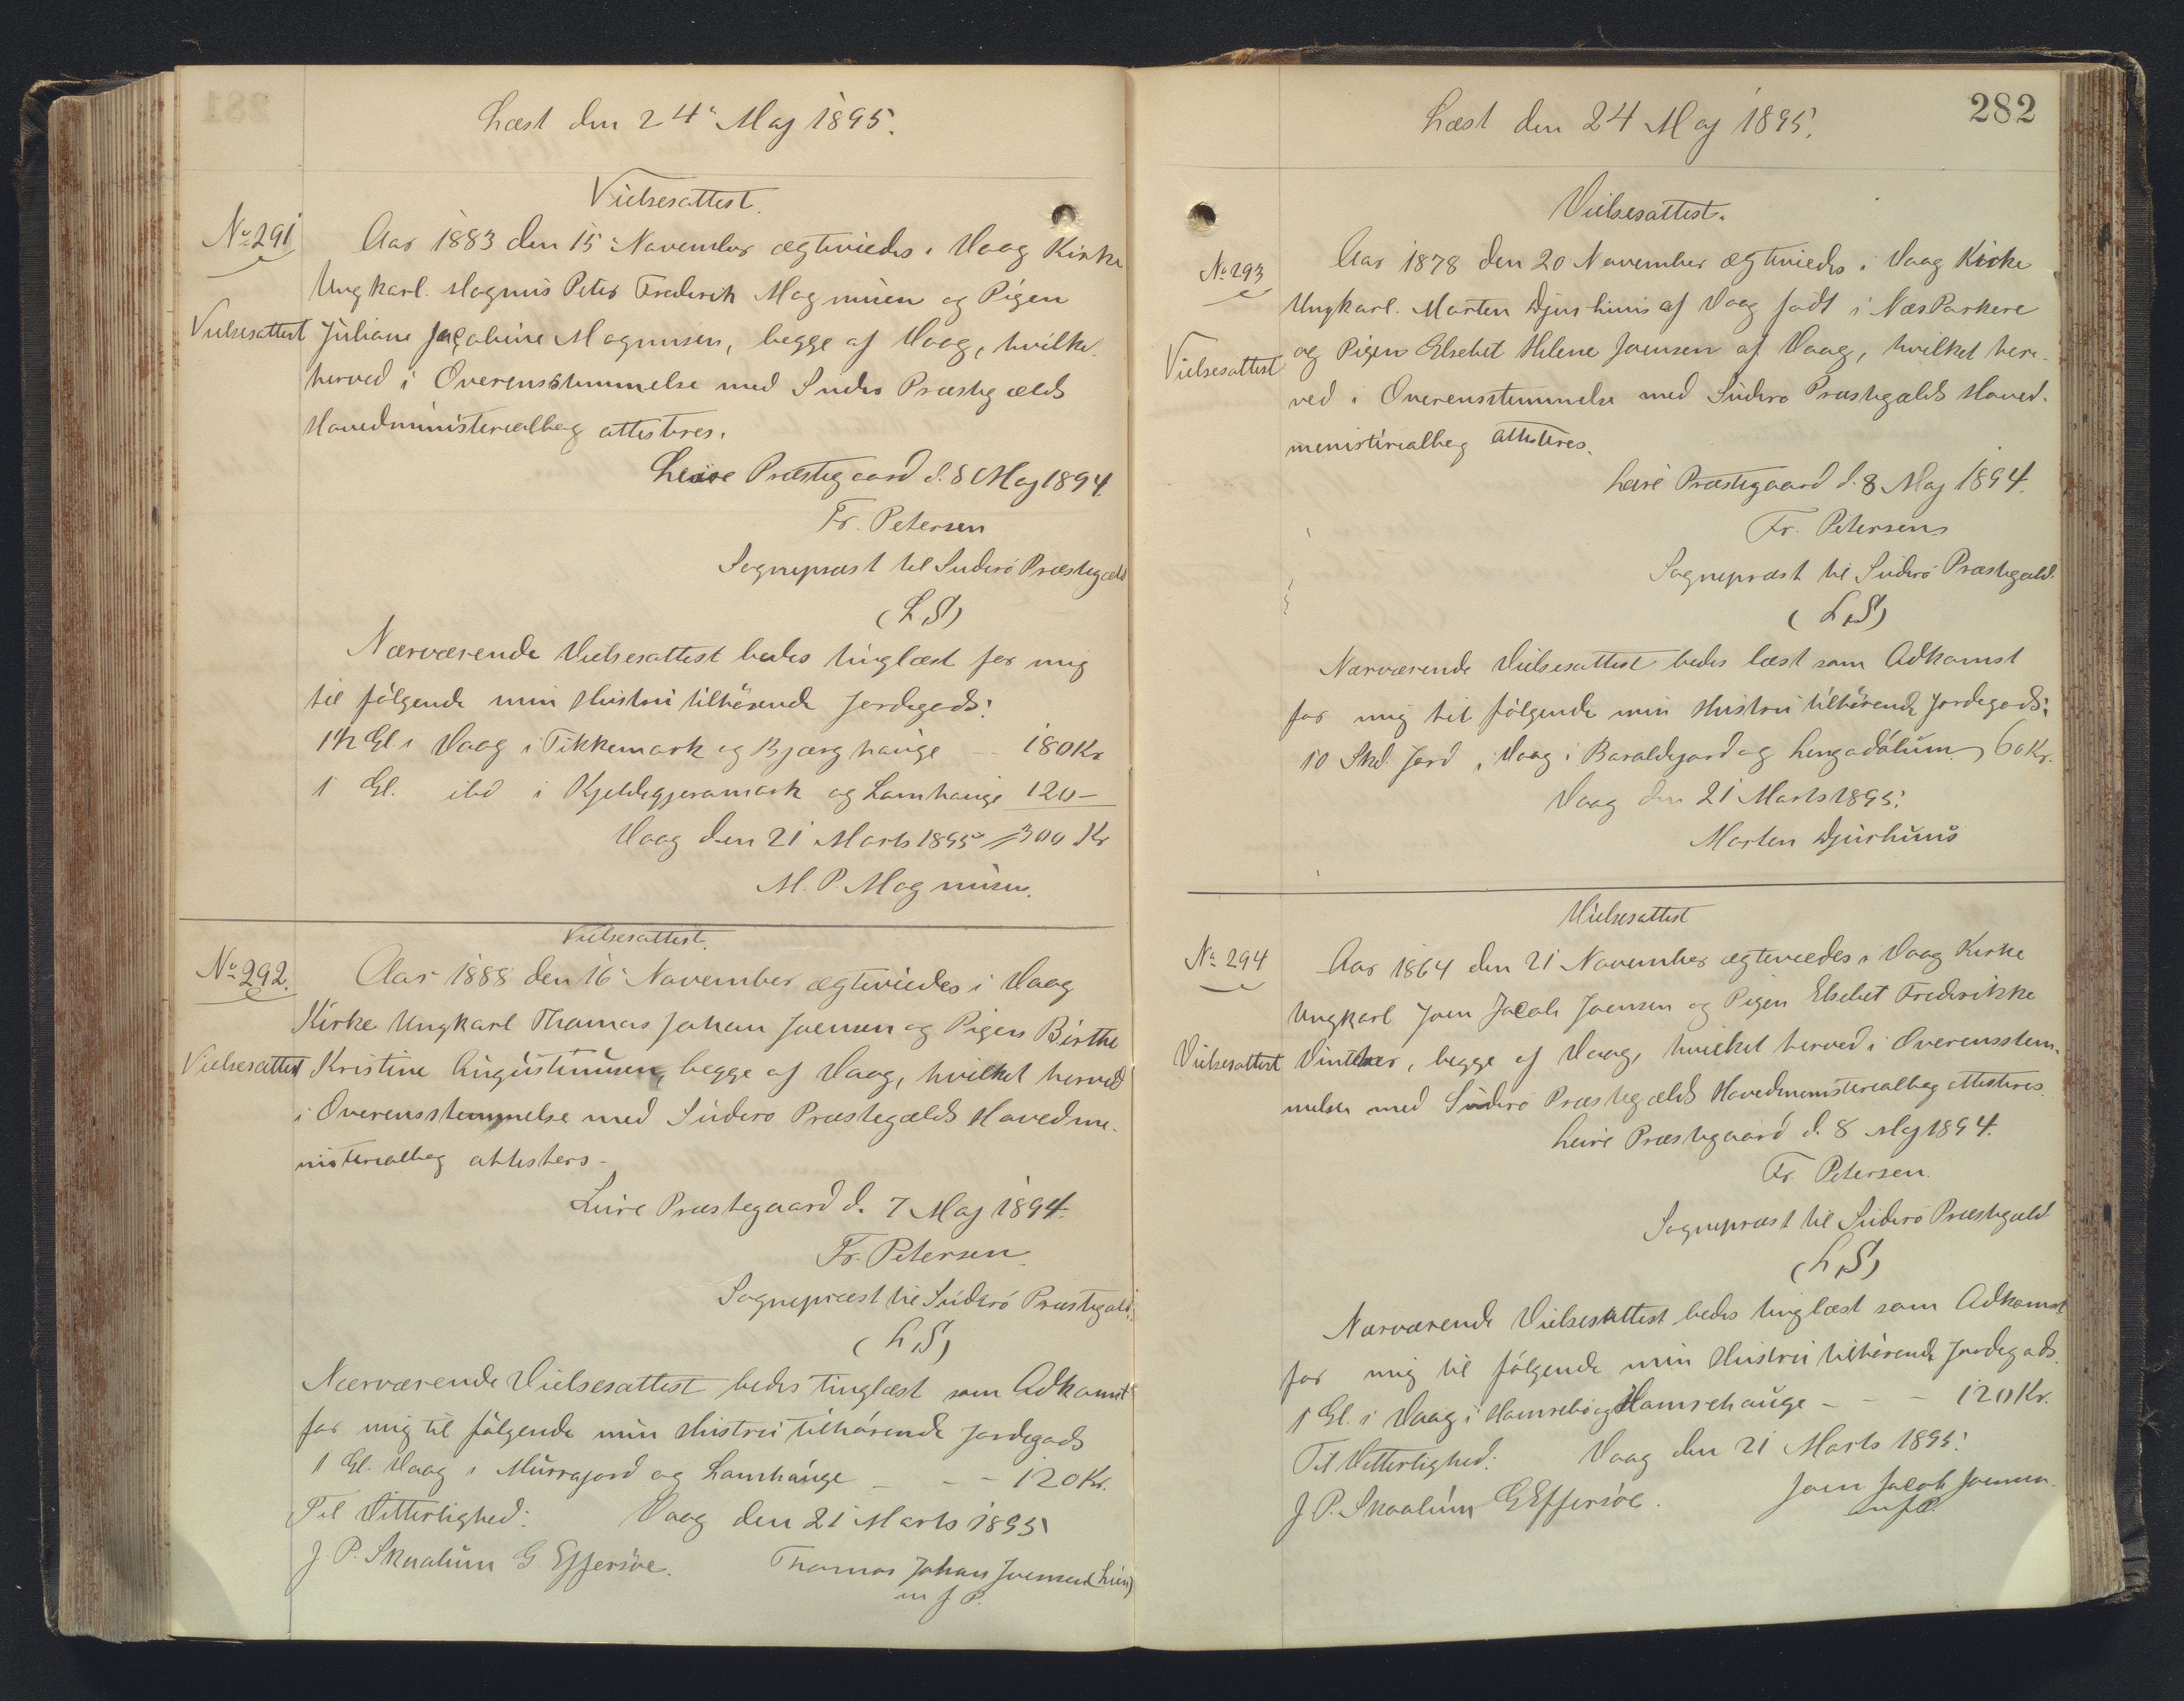 Læst den 24' Maj 1895.
Vielsesattest.
No 291
Aar 1883 den 15' November ægteviedes i Vaag Kirke
Ungkarl. Magnus Peter Frederik Magnusen og Pigen
Vielsesattest
Juliane Jacobine Magnusen, begge af Vaag, hvilke
herved i Overensstemmelse med Suderø Præstegælds
Hovedministerialbog attesteres.
Præstegaard d. 8 Maj 1894.
Fr. Petersen
Sognepræst til Suderö Præstegæld
(L.S)
Nærværende Vielsesattest bedes tinglæst for mig
til følgende min Hustru tilhörende Jordegods:
1½ Gl. i Vaag i Tikkemark og Bjærghauge — 180 Kr
1 Gl. ibd i Kjeldegjeramark og Lamhauge 120 –
Vaag den 21 Marts 1895 300 Kr
M. P. Magnusen.
Vielsesattest.
No 292.
Aar 1888 den 16' November ægteviedes i Vaag
Kirke Ungkarl Thomas Johan Joensen og Pigen Birthe
Vielsesattest
Kristine Augustinusen, begge af Vaag, hvilket herved
i Overensstemmelse med Suderø Præstegælds Hovedmi-
nisterialbog attesters.
Præstegaard d. 7 Maj 1894.
Fr. Petersen
Sognepræst til Suderö Præstegæld.
(L.S)
Nærværende Vielsesattest bedes tinglæst som Adkomst
for mig til følgende min Hustru tilhörende Jordegods
1 Gl. Vaag i Murragord og Lamhauge – – – 120 Kr.
Til Vitterlighed: Vaag den 21 Marts 1895
J. P. Skaalum G. Effersöe. Thomas Johan Joensen
m f P.
282
Læst den 24 Maj 1895.
Vielsesattest.
No 293
Aar 1878 den 20 November ægteviedes i Vaag Kirke
Ungkarl. Morten Djurhuus af Vaag født i Næs Porkere
Vielsesattest
og Pigen Elsebet Helene Joensen af Vaag, hvilket her-
ved i Overensstemmelse med Suderø Præstegælds Hoved-
ministerialbog attesteres.
Præstegaard d. 8 Maj 1894.
Fr. Petersen
Sognepræst til Suderö Præstegæld
(L.S)
Nærværende Vielsesattest bedes læst som Adkomst
for mig til følgende min Hustru tilhörende Jordegods:
10 Skd. Jord i Vaag i Baraldsgard og Lengadalum 60 Kr.
Vaag den 21 Marts 1895.
Morten Djurhuus
Vielsesattest
No 294
Aar 1864 den 21 November ægteviedes i Vaag Kirke
Ungkarl Joen Jacob Joensen og Pigen Elsebet Frederikke
Vielsesattest
Vinther, begge af Vaag, hvilket herved i Overensstem-
melse med Suderø Præstegælds Hovedministerialbog attesteres.
Præstegaard d. 8 Maj 1894.
Fr. Petersen.
Sognepræst til Suderö Præstegæld
(L.S)
Nærværende Vielsesattest bedes tinglæst som Adkomst
for mig til følgende min Hustru tilhörende Jordegods.
1 Gl. i Vaag i Hamrebö og Hamrehauge – – – 120 Kr.
Til Vitterlighed: Vaag den 21 Marts 1895.
J. P. Skaalum G Effersöe. Joen Jacob Joensen.
m f P.